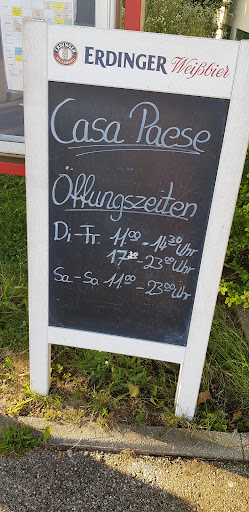 ERDINGER Weißbier
Casa Paese
Öffungszeiten
Di.-Fr. 11⁰⁰ - 14³⁰ Uhr
17³⁰ - 23⁰⁰ Uhr
Sa.-So. 11⁰⁰ - 23⁰⁰ Uhr